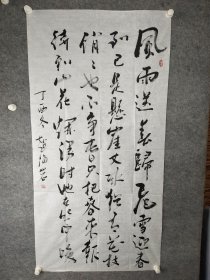 風雨送春歸飛雪迎春
到已是懸崖百丈冰犹有花枝
俏々也不争春只把春来報
待到山花爛漫时她在丛中笑
丁酉冬